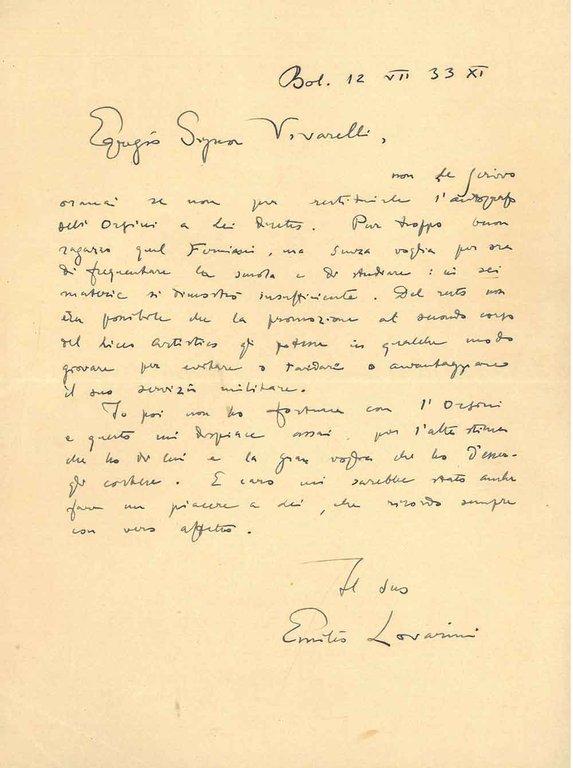 Bol. 12 VII 33 XI
Egregio Signor Vivarelli,
non le scrivo
oramai se non per restituirle l'autografo
dell'Orsini a Lei diretto. Pur troppo buon
ragazzo quel Formiani, ma senza voglia per ora
di frequentare la scuola e di studiare: in sei
materie si dimostrò insufficiente. Del resto non
era possibile che la promozione al secondo corso
del liceo artistico gli potesse in qualche modo
giovare per evitare o tardare o avantaggiare
il suo servizio militare.
Io poi non ho fortuna con l'Orsini
e questo mi dispiace assai, per l'alta stima
che ho di lui e la gran voglia che ho d'esser-
gli cortese. E caro mi sarebbe stato anche
fare un piacere a Lei, che ricordo sempre
con vero affetto.
Il suo
Emilio Lovarini